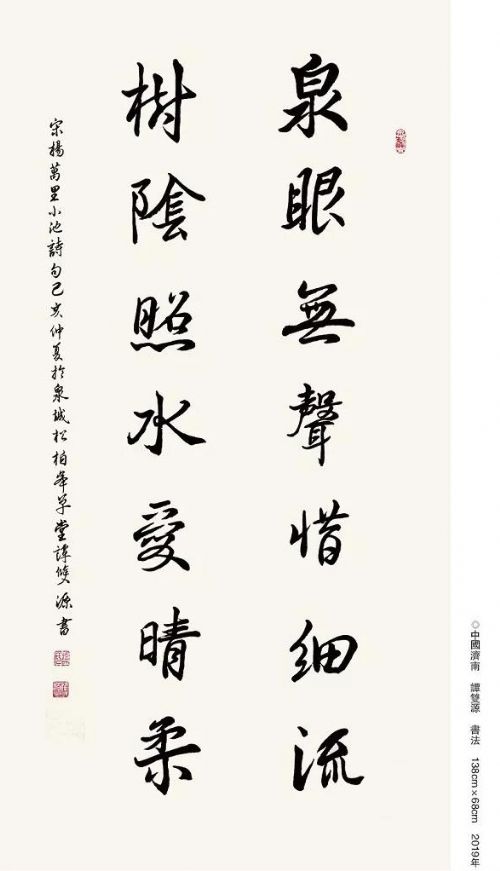 泉眼無聲惜細流
樹陰照水愛晴柔
宋楊萬里小池詩句己亥仲夏於泉城松柏峯草堂譚雙源書
◎中國濟南 譚雙源 書法 138cm×68cm 2019年